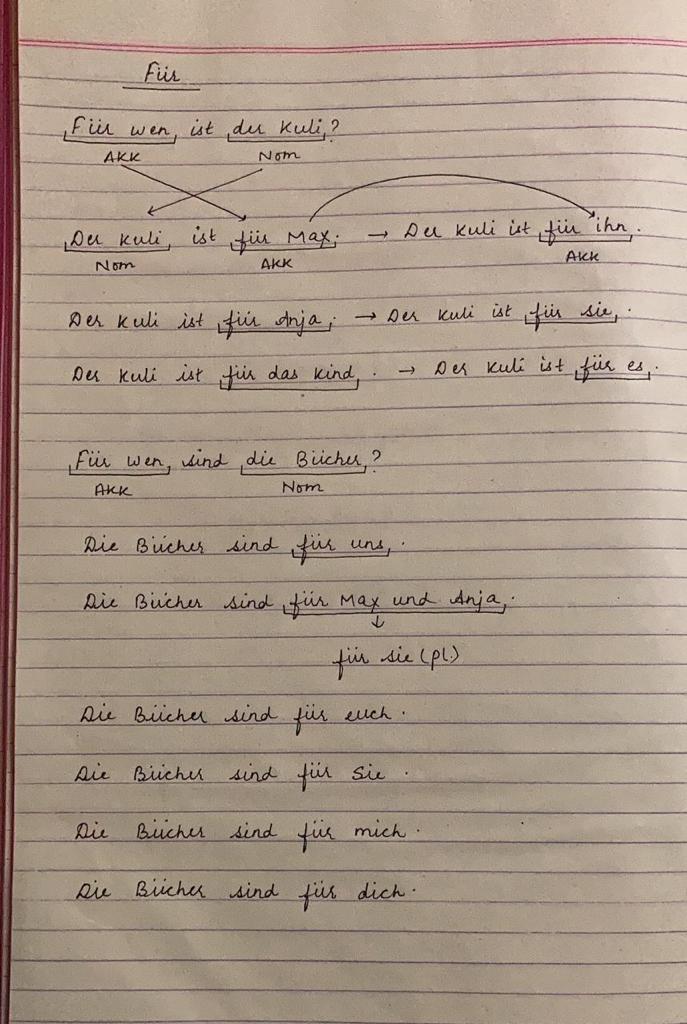 Für
Für wen ist der Kuli?
AKK Nom
Der Kuli ist für Max. → Der Kuli ist für ihn.
Nom AKK AKK
Der Kuli ist für Anja. → Der Kuli ist für sie.
Der Kuli ist für das Kind. → Der Kuli ist für es.
Für wen sind die Bücher?
AKK Nom
Die Bücher sind für uns.
Die Bücher sind für Max und Anja.
↓
für sie (pl.)
Die Bücher sind für euch.
Die Bücher sind für Sie.
Die Bücher sind für mich.
Die Bücher sind für dich.